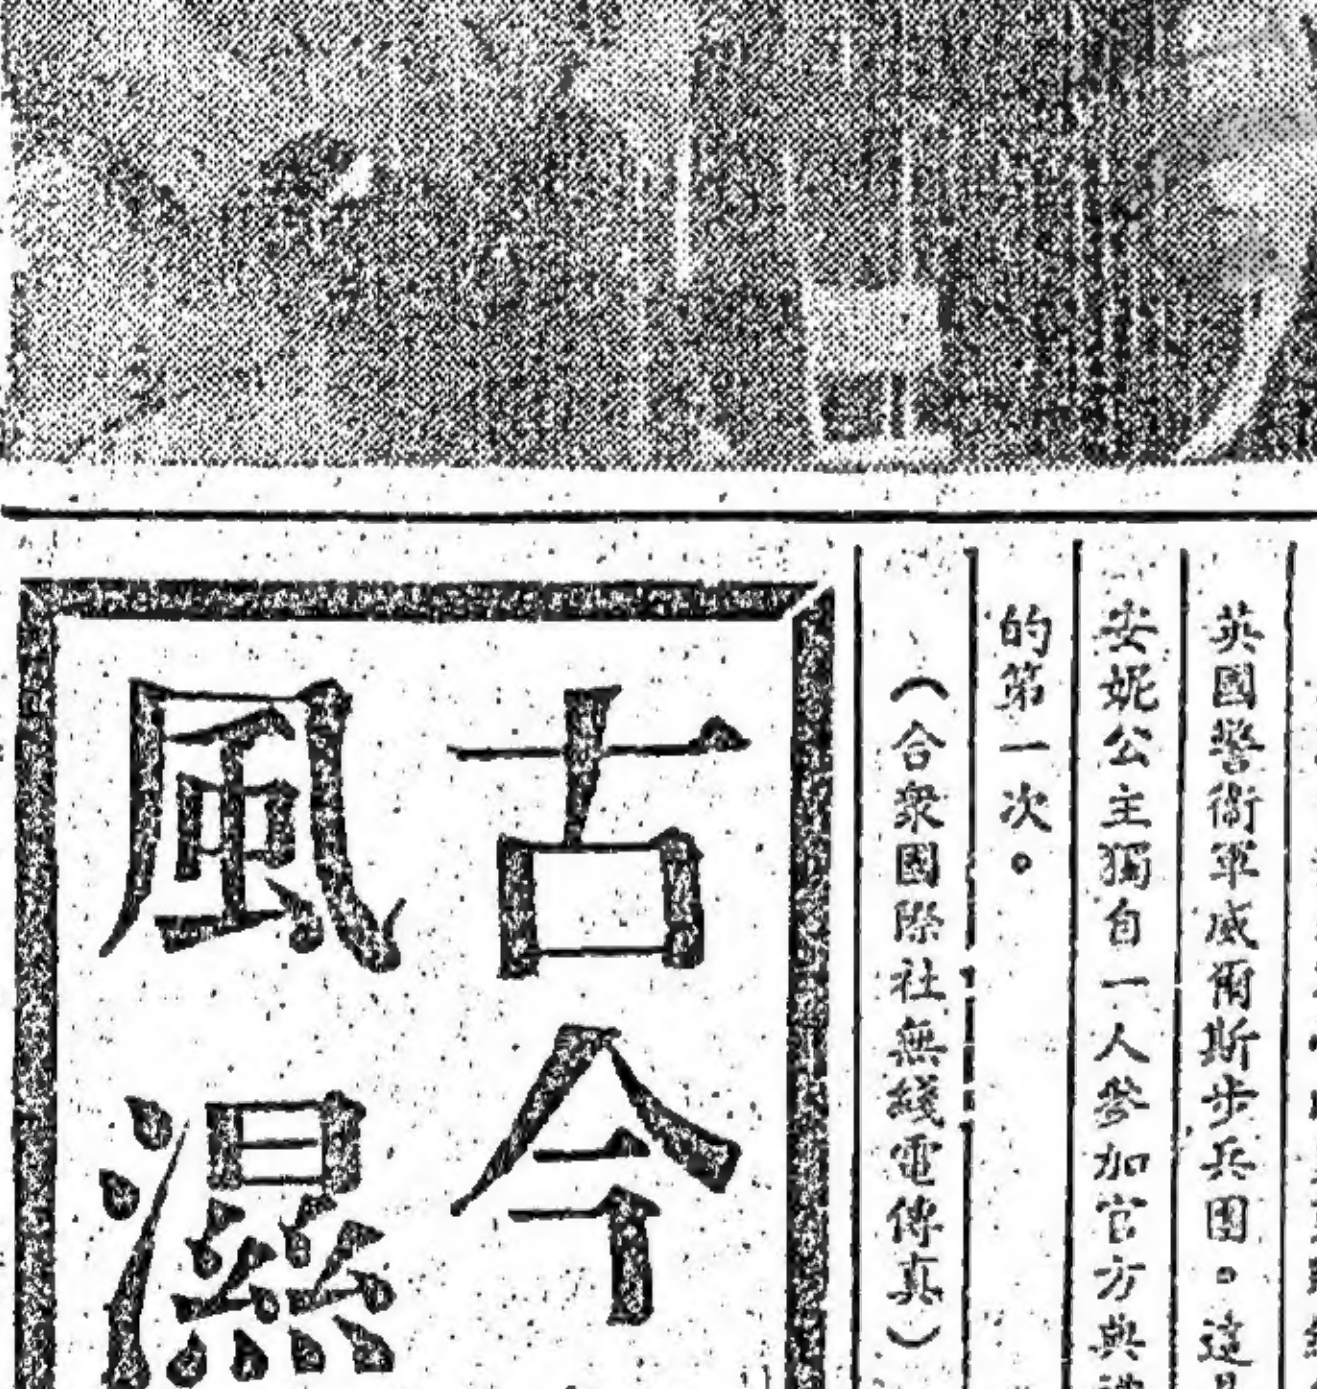 英國警衞軍威爾斯步兵團。這是
安妮公主獨自一人參加官方典禮
的第一次。
（合衆國際社無綫電傳真）
古今
風濕